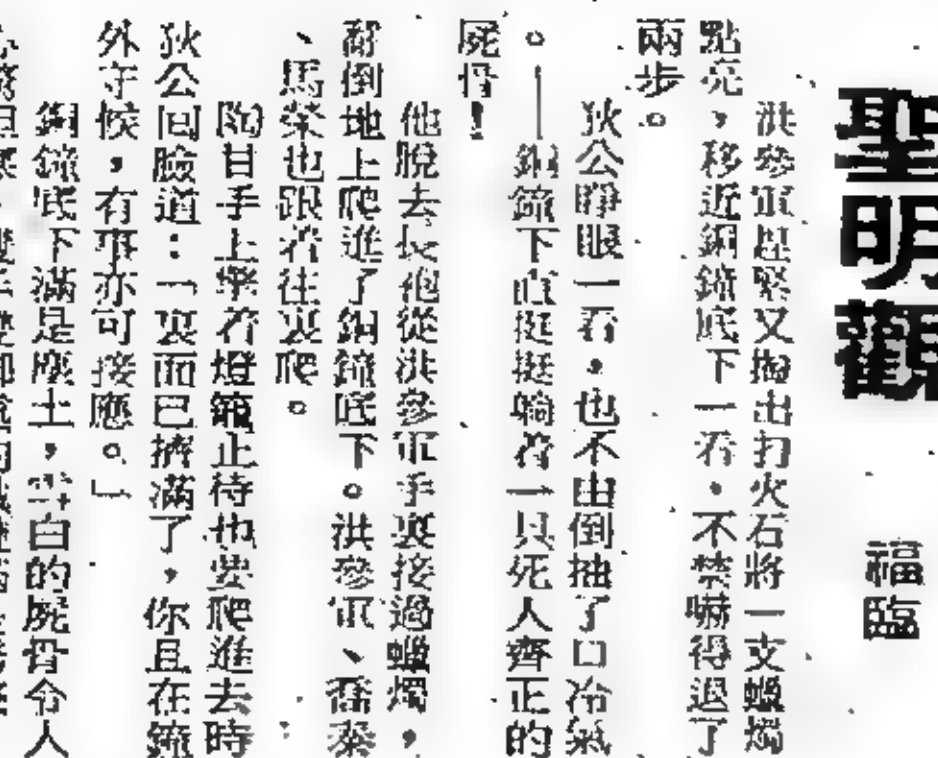 聖明觀
福臨
洪參軍趕緊又掏出打火石將一支蠟燭
點亮，移近銅鐘底下一看，不禁嚇得退了
兩步。
狄公睜眼一看，也不由倒抽了口冷氣
。——銅鐘下直挺挺躺着一具死人齊正的
屍骨！
他脫去長袍從洪參軍手裏接過蠟燭，
翻倒地上爬進了銅鐘底下。洪參軍、喬泰
、馬榮也跟着往裏爬。
陶甘手上擧着燈籠正待也要爬進去時
狄公回臉道：「裏面已擠滿了，你且在鐘
外守候，有事亦可接應。」
銅鐘底下滿是塵土，雪白的屍骨令人